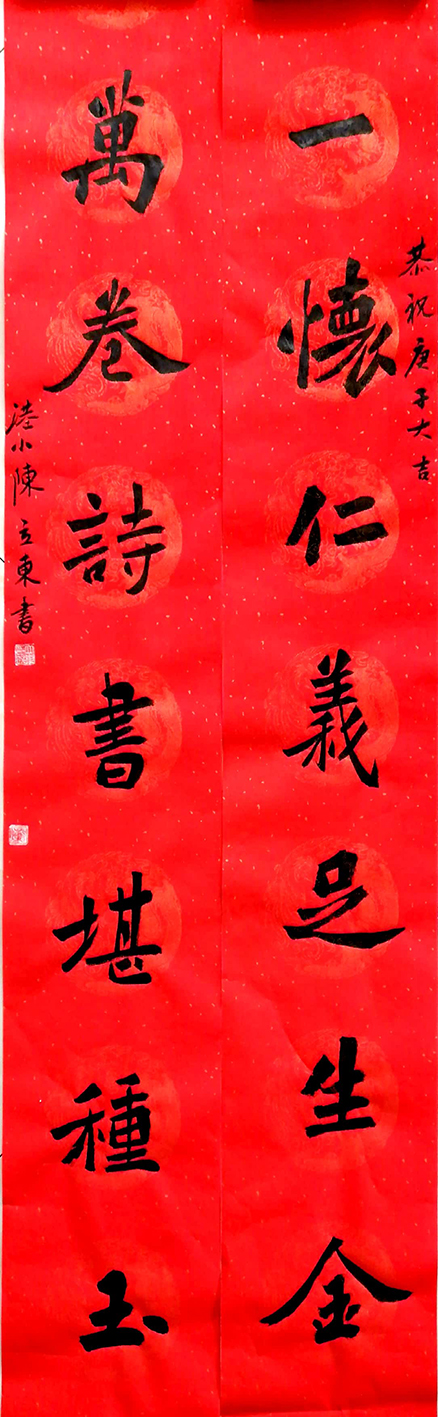 恭祝庚子大吉
一懷仁義足生金
萬卷詩書堪種玉
陸小陳立東書